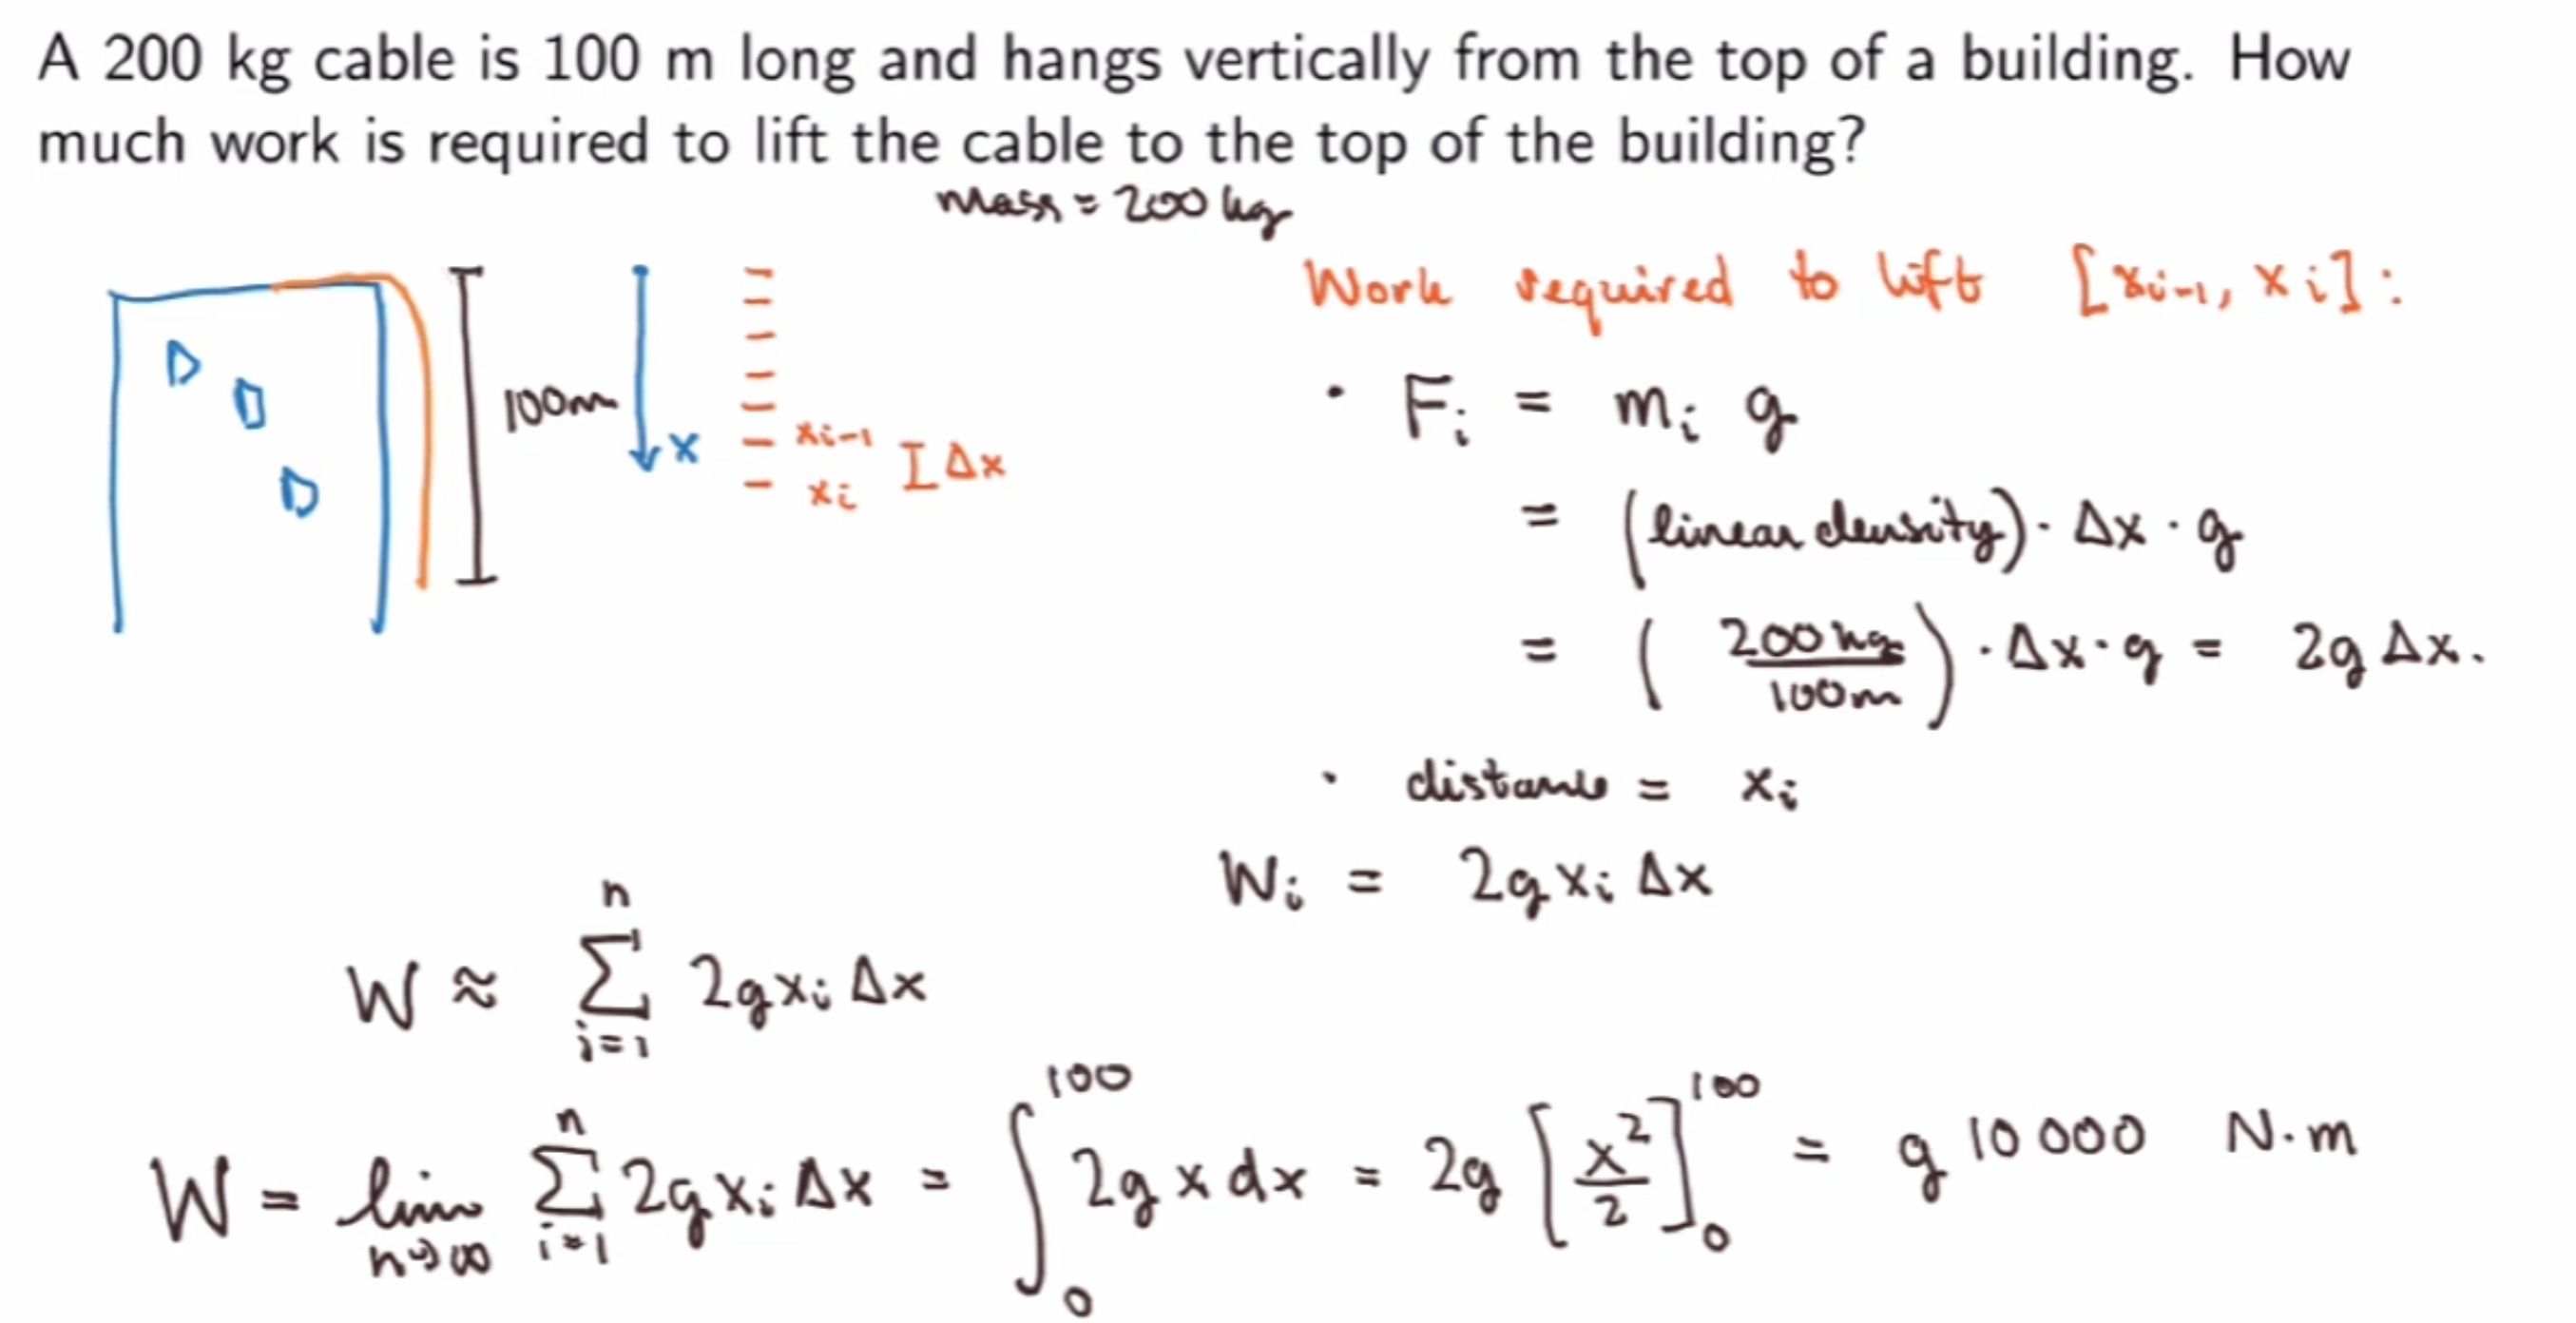 A 200 kg cable is 100 m long and hangs vertically from the top of a building. How
much work is required to lift the cable to the top of the building?
mass = 200 kg
100m
x
xi-1
xi
I Δx
Work required to lift [xi-1, xi]:
• Fi = mi g
= (linear density) · Δx · g
= (200 kg / 100m) · Δx · g = 2g Δx.
• distance = xi
Wi = 2g xi Δx
W ≈ n Σ i=1 2g xi Δx
W = lim n→∞ n Σ i=1 2g xi Δx = ∫ 100 0 2g x dx = 2g [x²/2] 100 0 = g 10 000 N·m